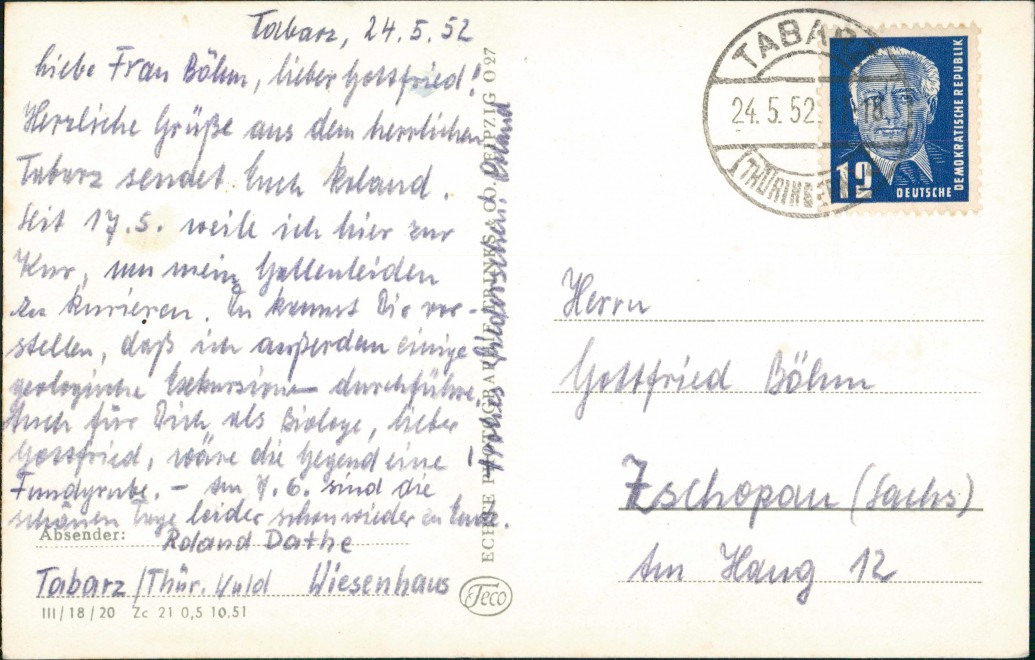 Tabarz, 24.5.52
Liebe Frau Böhm, lieber Gottfried!
Herzliche Grüße aus dem herrlichen
Tabarz sendet Euch Roland.
Seit 17.5. weile ich hier zur
Kur, um mein Gallenleiden
zu kurieren. Du kannst Dir vor-
stellen, daß ich außerdem einige
geologische Exkursionen durchführe.
Auch für Dich als Biologe, lieber
Gottfried, wäre die Gegend eine
Fundgrube. – Am 7.6. sind die
schönen Tage leider schon wieder zu Ende.
Frohes Wiedersehen! Roland
Absender: Roland Dathe
Tabarz/Thür. Wald Wiesenhaus
III/18/20 Zc 21 0,5 10.51
ECHTE PHOTOGRAPHIE ERINKS & CO. LEIPZIG O 27
Feco
TABARZ
24.5.52 18
(THÜRINGEN)
12
DEUTSCHE
DEMOKRATISCHE REPUBLIK
Herrn
Gottfried Böhm
Zschopau (Sachs)
Am Hang 12